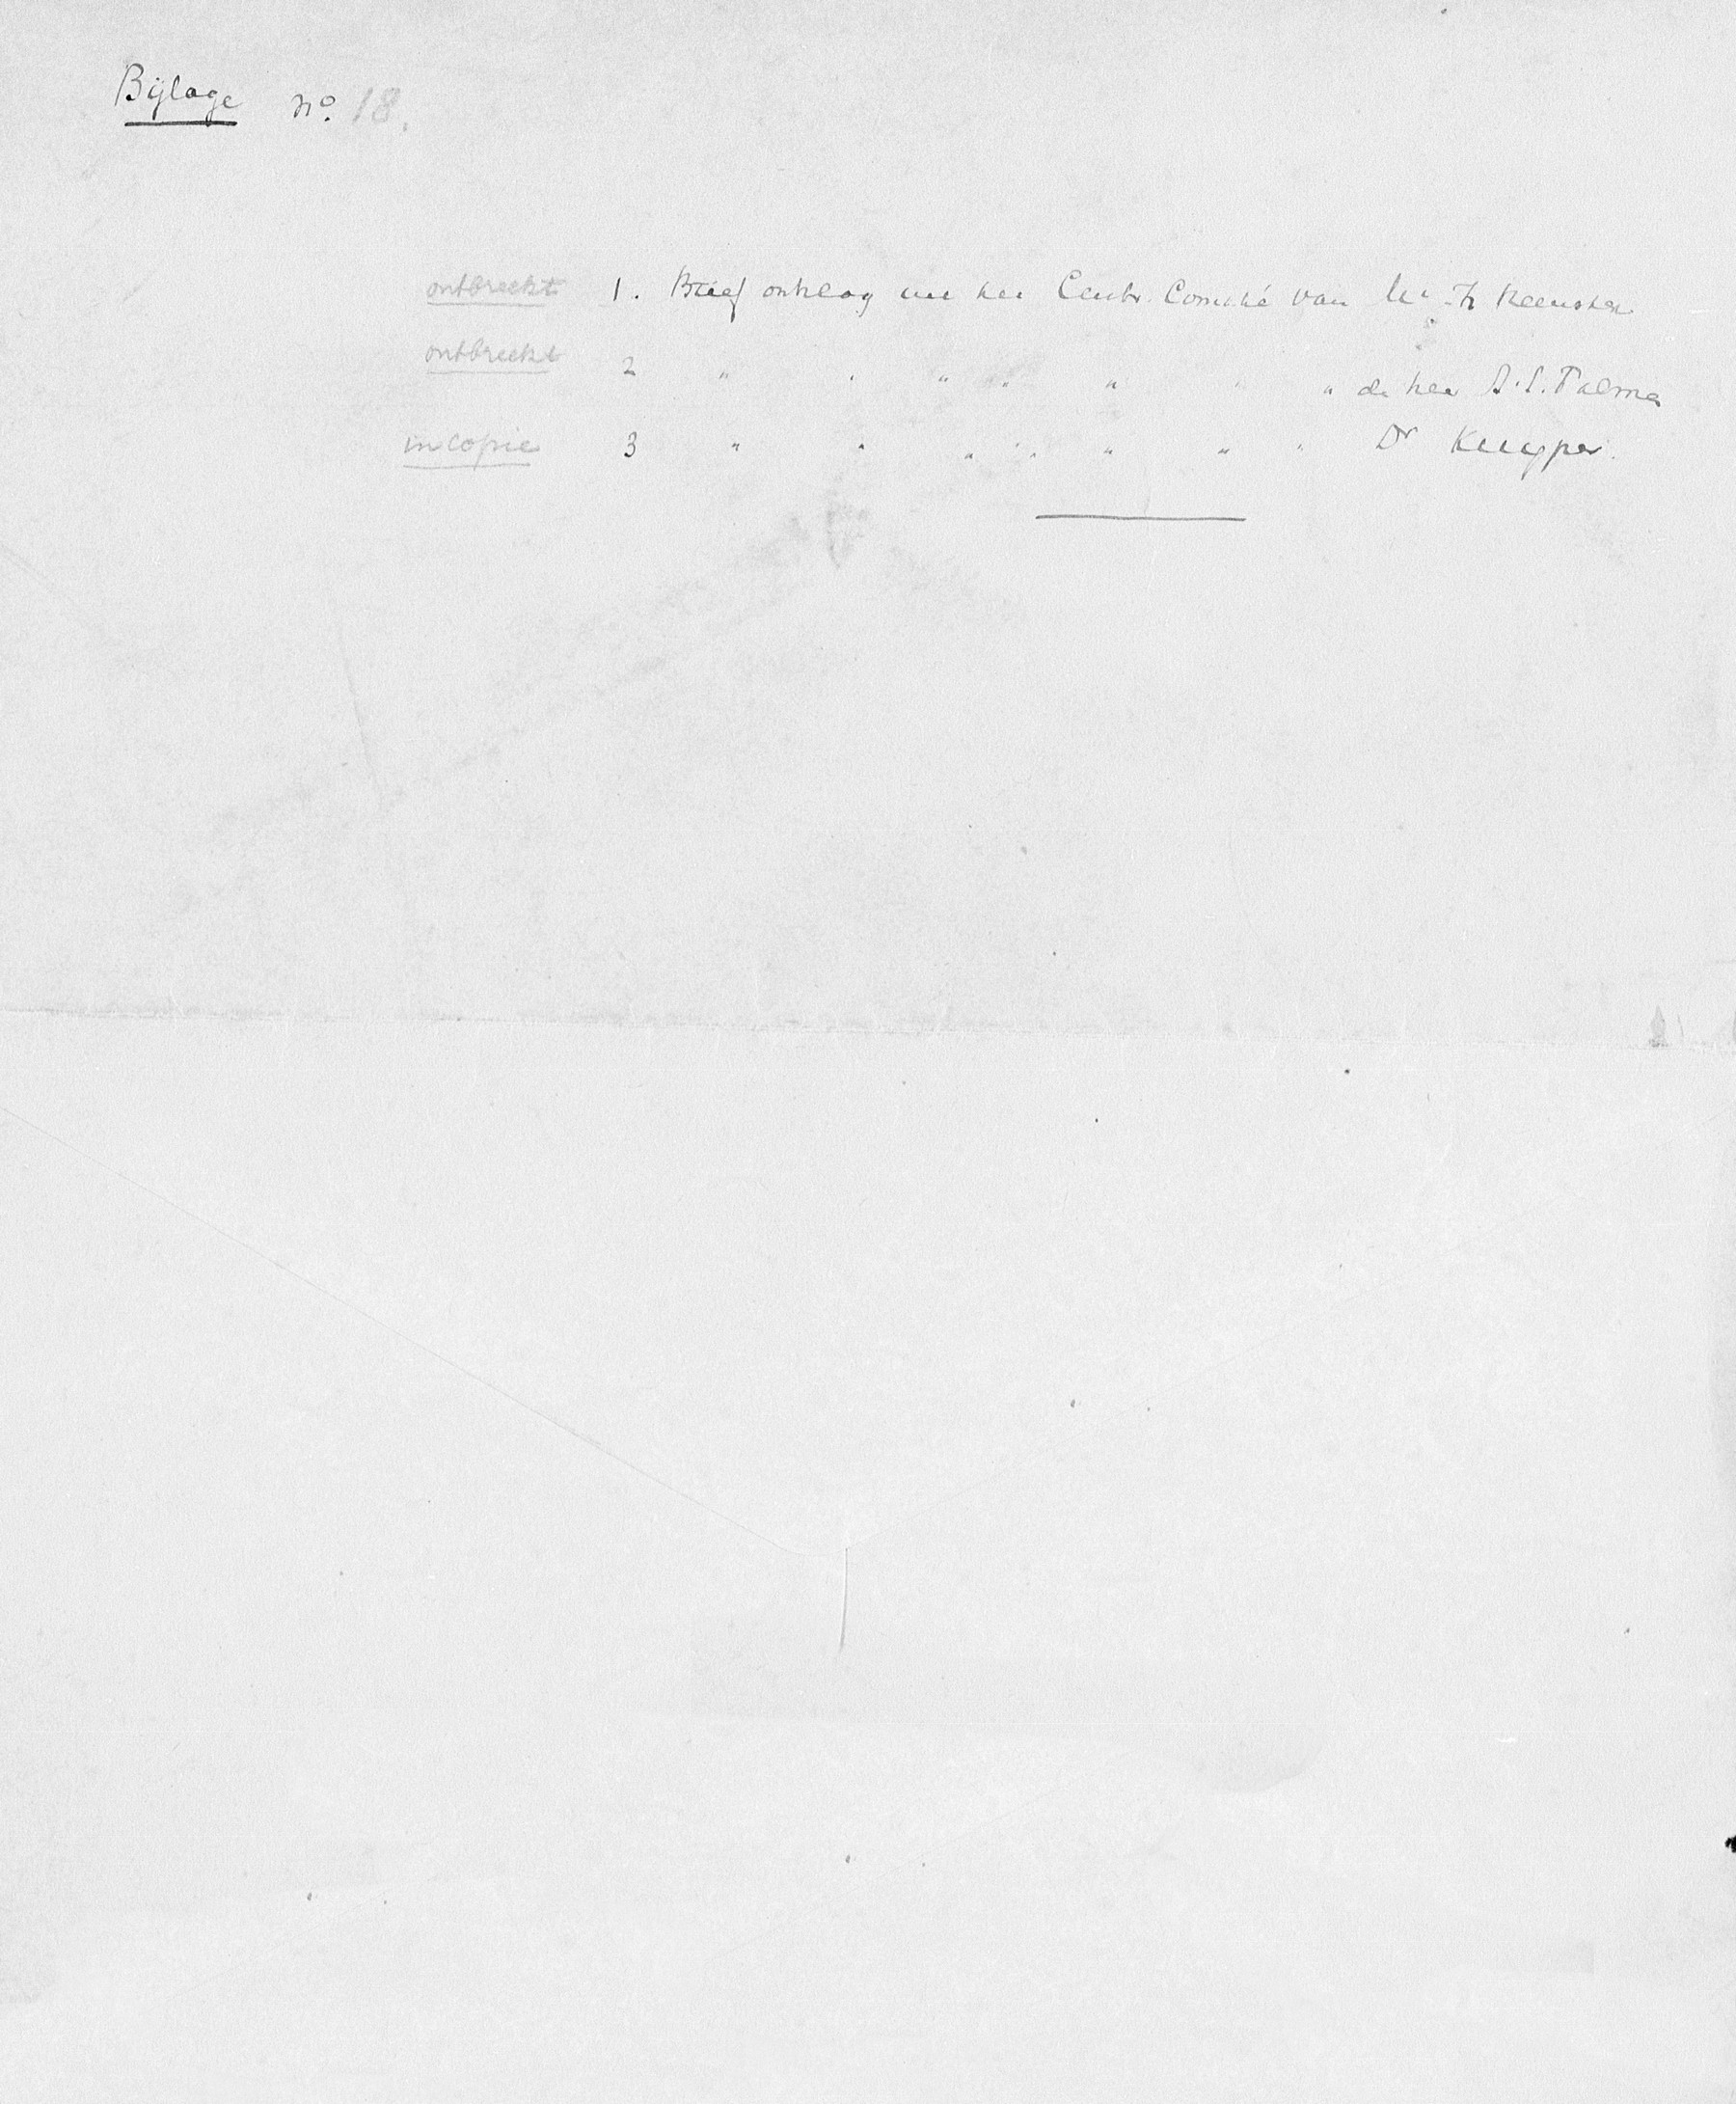 Bijlage No. 18.
ontbreekt 1. Brief ontslag uit het Centr. Comité van Mr. Th Heemskerk
ontbreekt 2 " " " " " " " de heer A. S. Talma
in copie 3 " " " " " " " Dr Kuyper.